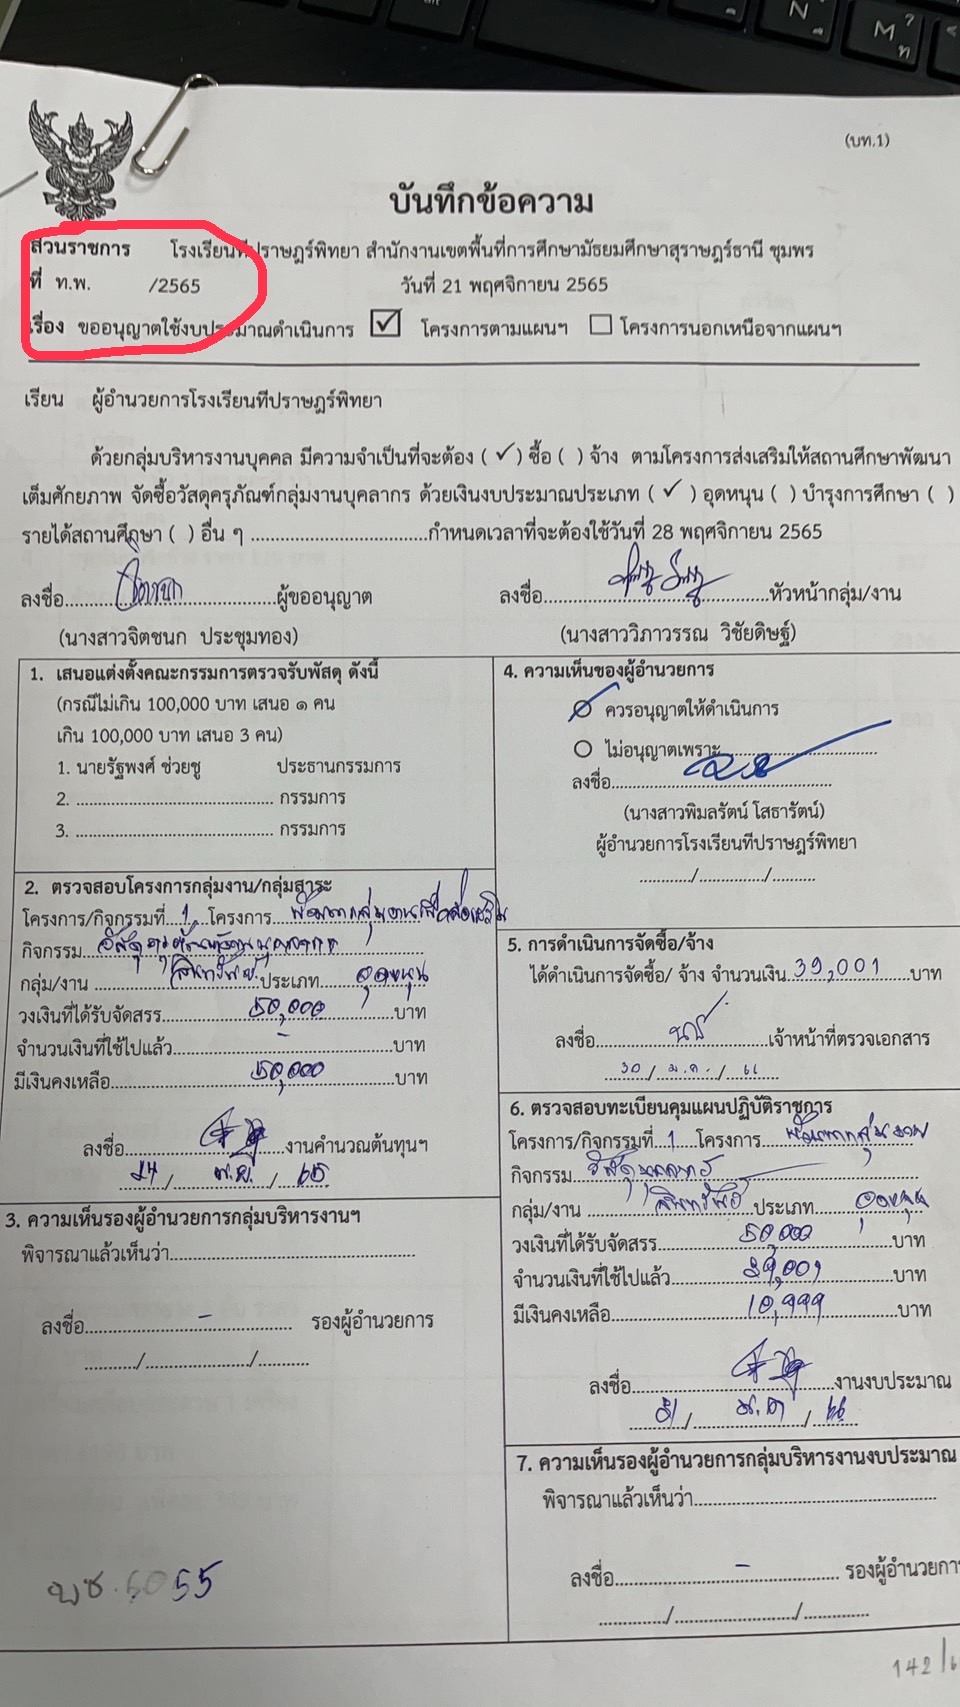 (บท.1)
บันทึกข้อความ
ส่วนราชการ โรงเรียนทีปราษฎร์พิทยา สำนักงานเขตพื้นที่การศึกษามัธยมศึกษาสุราษฎร์ธานี ชุมพร
ที่ ท.พ. /2565 วันที่ 21 พฤศจิกายน 2565
เรื่อง ขออนุญาตใช้งบประมาณดำเนินการ ☑ โครงการตามแผนฯ ☐ โครงการนอกเหนือจากแผนฯ
เรียน ผู้อำนวยการโรงเรียนทีปราษฎร์พิทยา
ด้วยกลุ่มบริหารงานบุคคล มีความจำเป็นที่จะต้อง ( ✓ ) ซื้อ ( ) จ้าง ตามโครงการส่งเสริมให้สถานศึกษาพัฒนา
เต็มศักยภาพ จัดซื้อวัสดุครุภัณฑ์กลุ่มงานบุคลากร ด้วยเงินงบประมาณประเภท ( ✓ ) อุดหนุน ( ) บำรุงการศึกษา ( )
รายได้สถานศึกษา ( ) อื่น ๆ ................................กำหนดเวลาที่จะต้องใช้วันที่ 28 พฤศจิกายน 2565
ลงชื่อ................................ผู้ขออนุญาต ลงชื่อ................................หัวหน้ากลุ่ม/งาน
(นางสาวจิตชนก ประชุมทอง) (นางสาววิภาวรรณ วิชัยดิษฐ์)
1. เสนอแต่งตั้งคณะกรรมการตรวจรับพัสดุ ดังนี้
(กรณีไม่เกิน 100,000 บาท เสนอ ๑ คน
เกิน 100,000 บาท เสนอ 3 คน)
1. นายรัฐพงศ์ ช่วยชู ประธานกรรมการ
2. ................................ กรรมการ
3. ................................ กรรมการ
2. ตรวจสอบโครงการกลุ่มงาน/กลุ่มสาระ
โครงการ/กิจกรรมที่ 1 โครงการ
กิจกรรม
กลุ่ม/งาน สินทรัพย์ ประเภท อุดหนุน
วงเงินที่ได้รับจัดสรร 50,000 บาท
จำนวนเงินที่ใช้ไปแล้ว - บาท
มีเงินคงเหลือ 50,000 บาท
ลงชื่อ................................งานคำนวณต้นทุนฯ
24 / พ.ย. / 65
3. ความเห็นรองผู้อำนวยการกลุ่มบริหารงานฯ
พิจารณาแล้วเห็นว่า................................
ลงชื่อ - รองผู้อำนวยการ
.........../..................../...........
พช. 5055
4. ความเห็นของผู้อำนวยการ
ควรอนุญาตให้ดำเนินการ
ไม่อนุญาตเพราะ................................
ลงชื่อ................................
(นางสาวพิมลรัตน์ โสธารัตน์)
ผู้อำนวยการโรงเรียนทีปราษฎร์พิทยา
.........../............../..........
5. การดำเนินการจัดซื้อ/จ้าง
ได้ดำเนินการจัดซื้อ/ จ้าง จำนวนเงิน 39,001 บาท
ลงชื่อ................................เจ้าหน้าที่ตรวจเอกสาร
30 / ม.ค. / 66
6. ตรวจสอบทะเบียนคุมแผนปฏิบัติราชการ
โครงการ/กิจกรรมที่ 1 โครงการ
กิจกรรม
กลุ่ม/งาน สินทรัพย์ ประเภท อุดหนุน
วงเงินที่ได้รับจัดสรร 50,000 บาท
จำนวนเงินที่ใช้ไปแล้ว 39,001 บาท
มีเงินคงเหลือ 10,999 บาท
ลงชื่อ................................งานงบประมาณ
31 / ม.ค / 66
7. ความเห็นรองผู้อำนวยการกลุ่มบริหารงานงบประมาณ
พิจารณาแล้วเห็นว่า................................
ลงชื่อ - รองผู้อำนวยการ
............/....................../............
142/